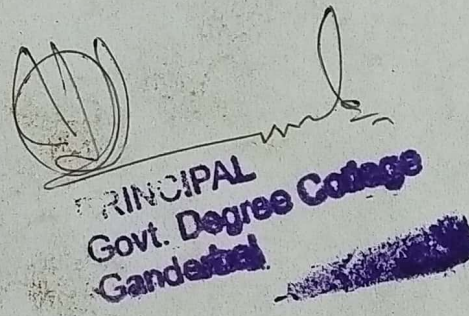 PRINCIPAL
Govt. Degree College
Ganderbal